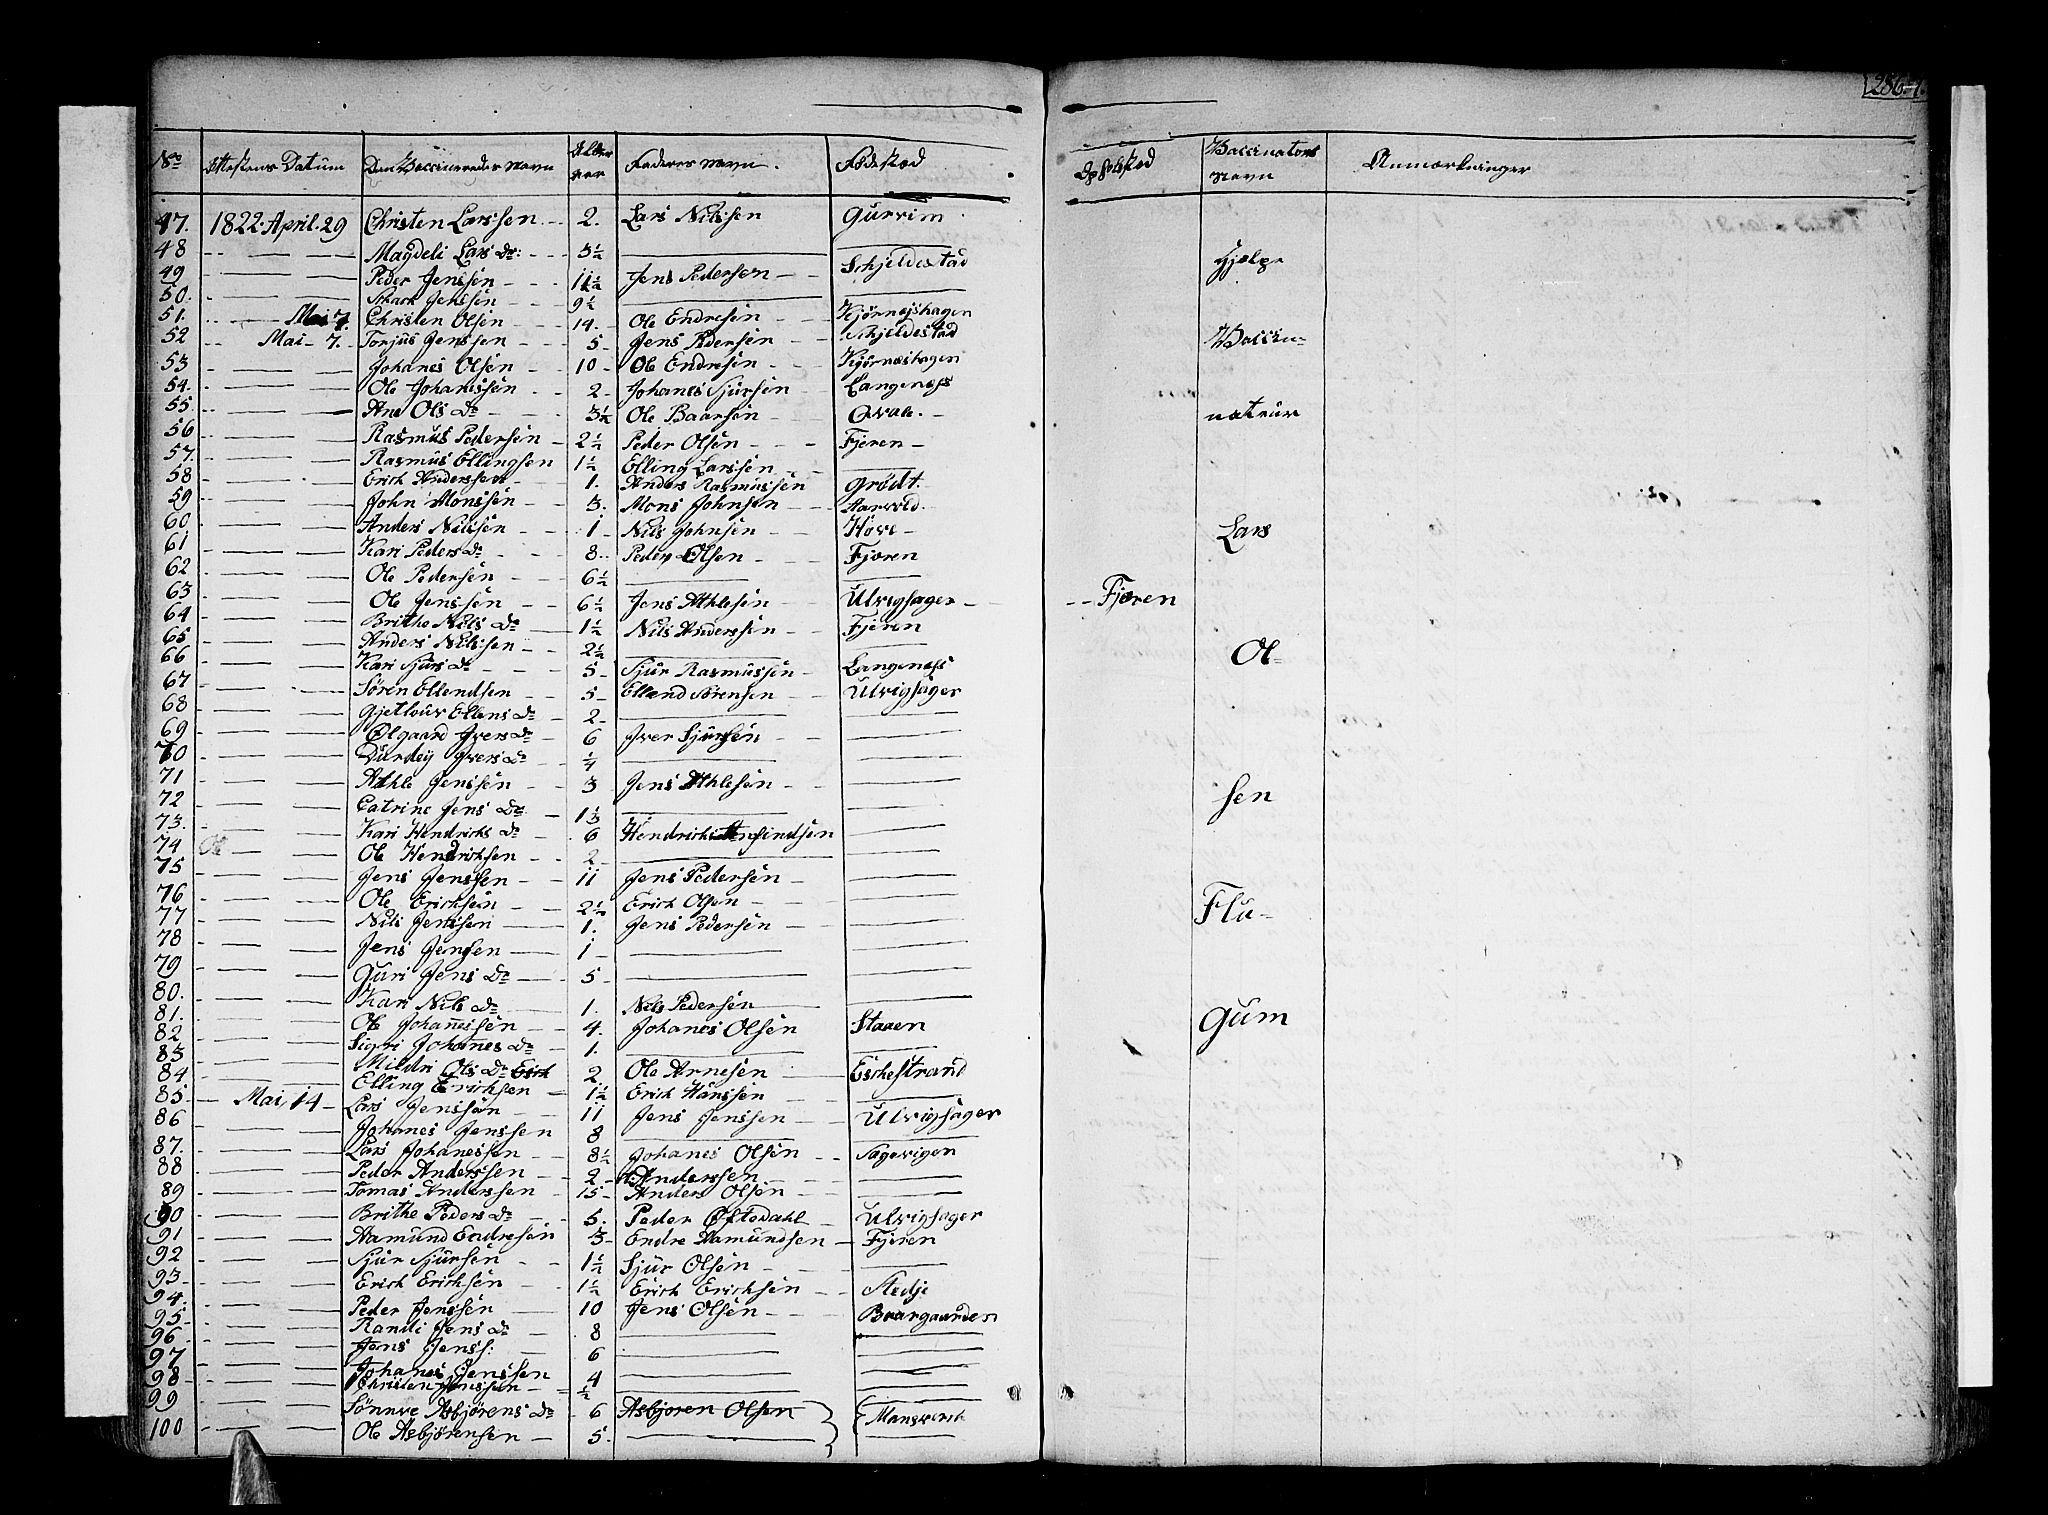 286.
No Attestens Datum Den Vaccineredes Navn Alder Aar Faderens Navn. Fødested Opholdsted Vaccinators Navn Anmærkninger
47. 1822. April. 29 Christen Larssen 2. Lars Nilssen Gurvim
48 — — Magdeli Lars Dr: 3½ — —
49 — — Peder Jenssen 11½ Jens Pedersen Schjeldestad
50. — — Jenssen 9½ — —
51. — Mai 7. Christen Olsen 14. Ole Endresen Kjørneshagen
52 — Mai 7. Torjus Jenssen 5 Jens Pedersen Schjeldestad
53 — — Johanes Olsen 10 Ole Endresen Kjørneshagen
54. — — Ole Johanssen 2 Johanes Sjursen Langenæss
55. — — Ane Ols Dr 3½ Ole Baarsen Qvale.
56 — — Rasmus Pedersen 2½ Peder Olsen Fjeren
57. — — Rasmus Ellingsen 1½ Elling Larssen —
58 — — Erich Anderssen 1. Anders Rasmussen Grødt
59 — — John Monssen 3. Mons Johnsen Aarvold.
60 — — Anders Nilssen 1 Nils Johnsen Hove
61 — — Kari Peders Dr 8 Peder Olsen Fjæren
62 — — Ole Pedersen 6½ — —
63 — — Ole Jenssen 6½ Jens Athlesen Ulvigsager
64 — — Brithe Nils Dr 1½ Nils Anderssen Fjeren
65 — — Anders Nilssen 2½ — —
66 — — Kari Sjurs Dr 5 Sjur Rasmussen Langenæss
67 — — Søren Ellendsen 5 Ellend Sørensen Ulvigsager
68 — — Gjetlouv Ellens Dr 2 — —
69 — — Ølgaard Ivers Dr 6 Iver Sjursen —
70 — — Durdey Ivers Dr ¼ — —
71 — — Athle Jenssen 3 Jens Athlesen —
72 — — Catrine Jens Dr 1⅓ — —
73. — — Kari Hendrichs Dr 6 Hendrich Amfindsen —
74 — — Ole Hendrichsen 2 — —
75 — — Jens Jenssen 11 Jens Pedersen —
76 — — Ole Erichsen 2½ Erich Olsen —
77 — — Nils Jenssen 1. Jens Pedersen —
78 — — Jens Jenssen 1 — —
79 — — Guri Jens Dr 5 — —
80. — — Kari Nils Dr 1. Nils Pedersen —
81. — — Ole Johanessen 4. Johanes Olsen Staaen
82 — — Sigri Johanes Dr 1. — —
83 — — Mildri Ols Dr 2. Ole Arnesen Eschestrand
84 — — Elling Erichsen 1½ Erich Hanssen —
85 — Mai 14 Lars Jenssen 11 Jens Jenssen Ulvigsager
86 — — Johanes Jenssen 8 — —
87. — — Lars Johanessen 8½ Johanes Olsen Sagevigen
88 — — Peder Anderssen 2 Anderssen —
89 — — Tomas Anderssen 15 Anders Olsen —
90 — — Brithe Peders Dr 5. Peder Oftedahl Ulvigsager
91 — — Aamund Endresen 3 Endre Aamundsen Fjeren
92 — — Sjur Sjursen 1½ Sjur Olsen —
93 — — Erich Erichsen 1½ Erich Erichsen Stedje
94. — — Peder Jenssen 10 Jens Olsen Baargaarden
95 — — Randi Jens Dr 8 — —
96 — — Jens Jenss: 6 — —
97 — — Johanes Jenssen 4 — —
98 — — Christen Jenssen ½ — —
99 — — Sønnve Asbjørens Dr 6 Asbjoren Olsen Mansverk
100 — — Ole Asbjørensen 5. — —
Hjelpe
Vaccin-
nateur
Lars
Fjæren
Ol-
sen
Flu-
gum